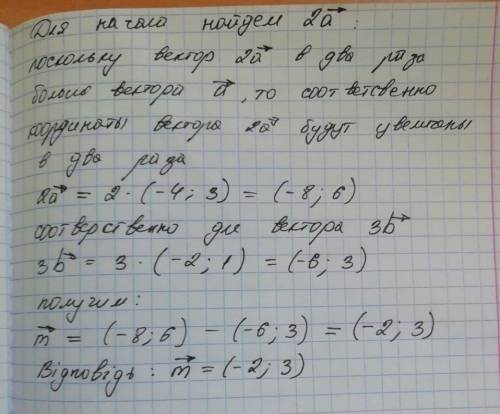 Для начала найдем 2a⃗ :
поскольку вектор 2a⃗ в два раза
больше вектора a⃗, то соответсвенно
координаты вектора 2a⃗ будут увеличены
в два раза
2a⃗ = 2 · (-4; 3) = (-8; 6)
соотверственно для вектора 3b⃗
3b⃗ = 3 · (-2; 1) = (-6; 3)
получим:
m⃗ = (-8; 6) - (-6; 3) = (-2; 3)
Відповідь : m⃗ = (-2; 3)